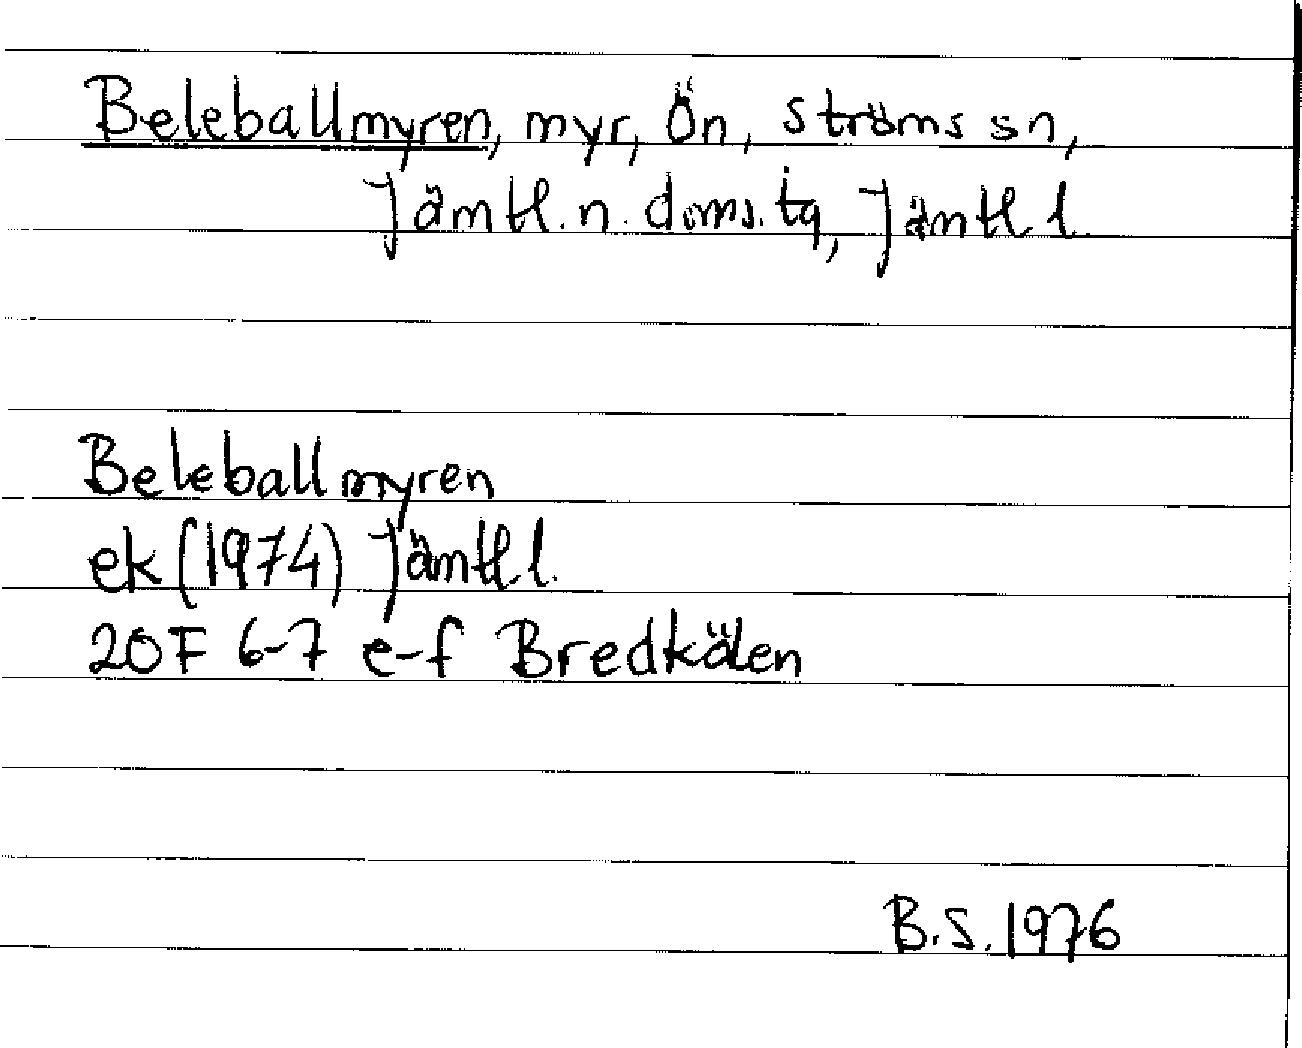 Beleballmyren, myr, Ön, Ströms sn,
Jämtl. n. doms. tg, Jämtl. l.
Beleballmyren
ek (1974) Jämtl. l.
20F 6-7 e-f Bredkälen
B.S. 1976